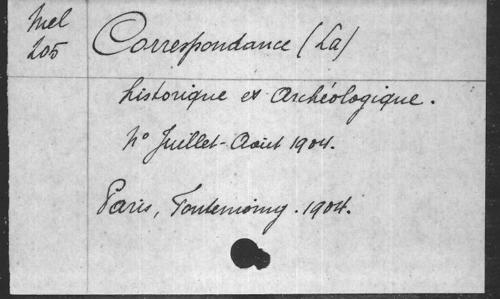 Mel
205
Correspondance (La)
historique et Archéologique.
No Juillet-Août 1904.
Paris, Fontemoing. 1904.